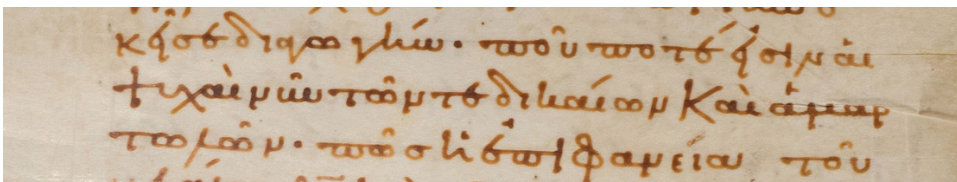 κεῖσε διαγωγήν· ποῦ ποτέ εἰσιν αἱ
ψυχαὶ νῦν τῶν τε δικαίων καὶ ἁμαρ
τωλῶν· πῶς ἡ ἐπιφάνεια τοῦ